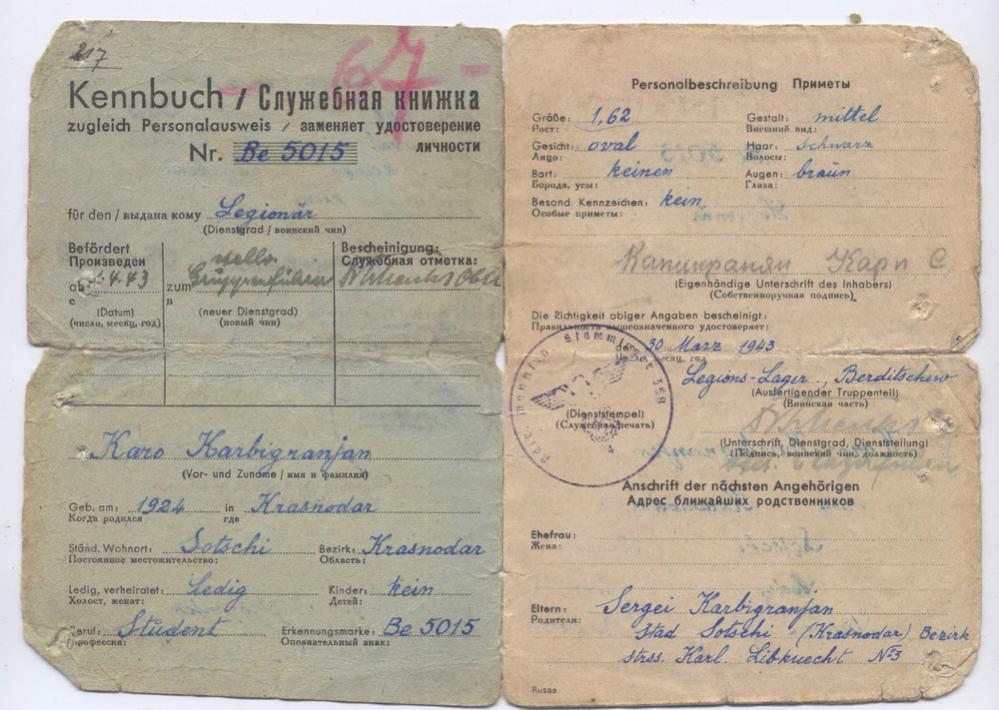 217
- 67 -
Kennbuch / Служебная книжка
zugleich Personalausweis / заменяет удостоверение
личности
Nr. Be 5015
für den / выдана кому Legionär
(Dienstgrad / воинский чин)
Befördert
Произведен
ab 4.43
с
(Datum)
(число, месяц, год)
stello.
zum Gruppenführer
в
(neuer Dienstgrad)
(новый чин)
Bescheinigung:
Служебная отметка:
Karo Karbigranjan
(Vor- und Zuname / имя и фамилия)
Geb. am: 1924 in Krasnodar
Когда родился где
Ständ. Wohnort: Sotschi Bezirk: Krasnodar
Постоянное местожительство: Область:
Ledig, verheiratet: Ledig Kinder: kein
Холост, женат: Детей:
Beruf: Student Erkennungsmarke: Be 5015
Профессия: Опознательный знак:
Personalbeschreibung Приметы
Größe: 1,62 Gestalt: mittel
Рост: Внешний вид:
Gesicht: oval Haar: schwarz
Лицо: Волосы:
Bart: keinen Augen: braun
Борода, усы: Глаза:
Besond. Kennzeichen: kein
Особые приметы:
Карп С
(Eigenhändige Unterschrift des Inhabers)
(Собственноручная подпись)
Die Richtigkeit obiger Angaben bescheinigt:
Правильность вышеозначенного удостоверяет:
den 30 März 1943
Число, месяц, год
Legions-Lager, Berditschew
(Ausfertigender Truppenteil)
(Воинская часть)
Stammlager 358
(Dienststempel)
(Служебная печать)
(Unterschrift, Dienstgrad, Dienststellung)
(Подпись, воинский чин, должность)
Anschrift der nächsten Angehörigen
Адрес ближайших родственников
Ehefrau:
Жена:
Eltern: Sergei Karbigranjan
Родители:
Stad Sotschi (Krasnodar) Bezirk
strss. Karl. Libknecht №3
Russe